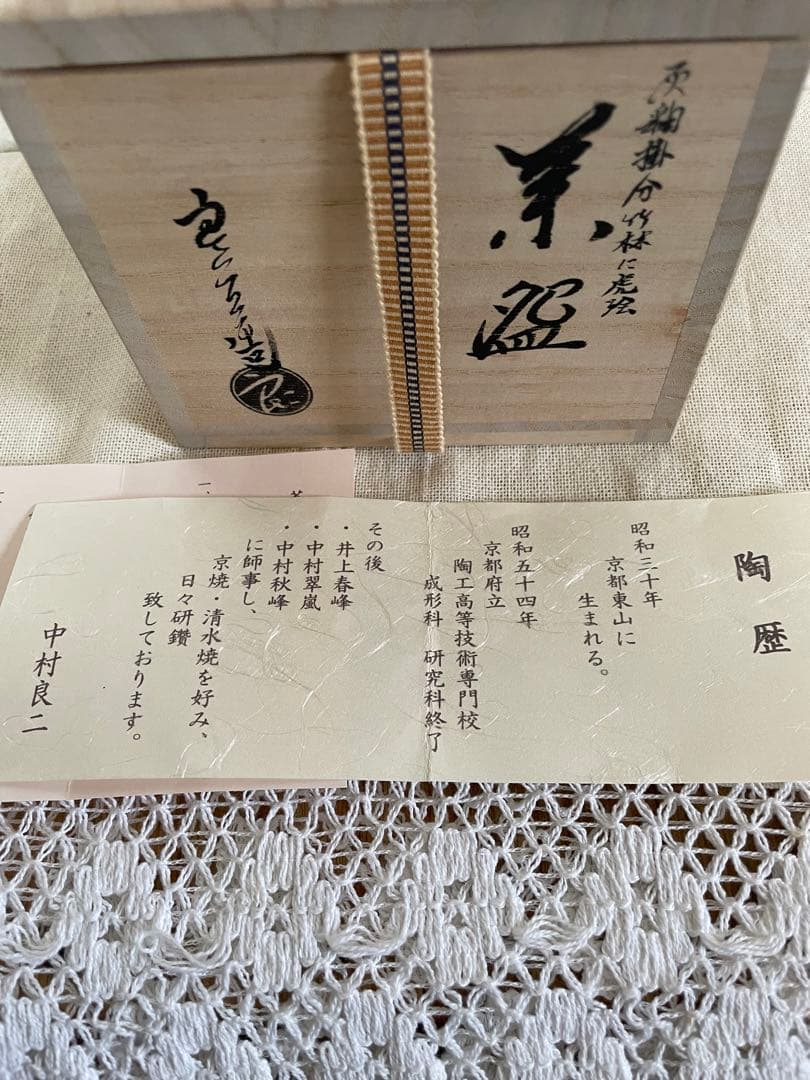 灰釉掛分竹林に虎絵
茶盌
陶歴
昭和三十年
京都東山に
生まれる。
昭和五十四年
京都府立
陶工高等技術専門校
成形科 研究科終了
その後
・井上春峰
・中村翠嵐
・中村秋峰
に師事し、
京焼・清水焼を好み、
日々研鑽
致しております。
中村良二